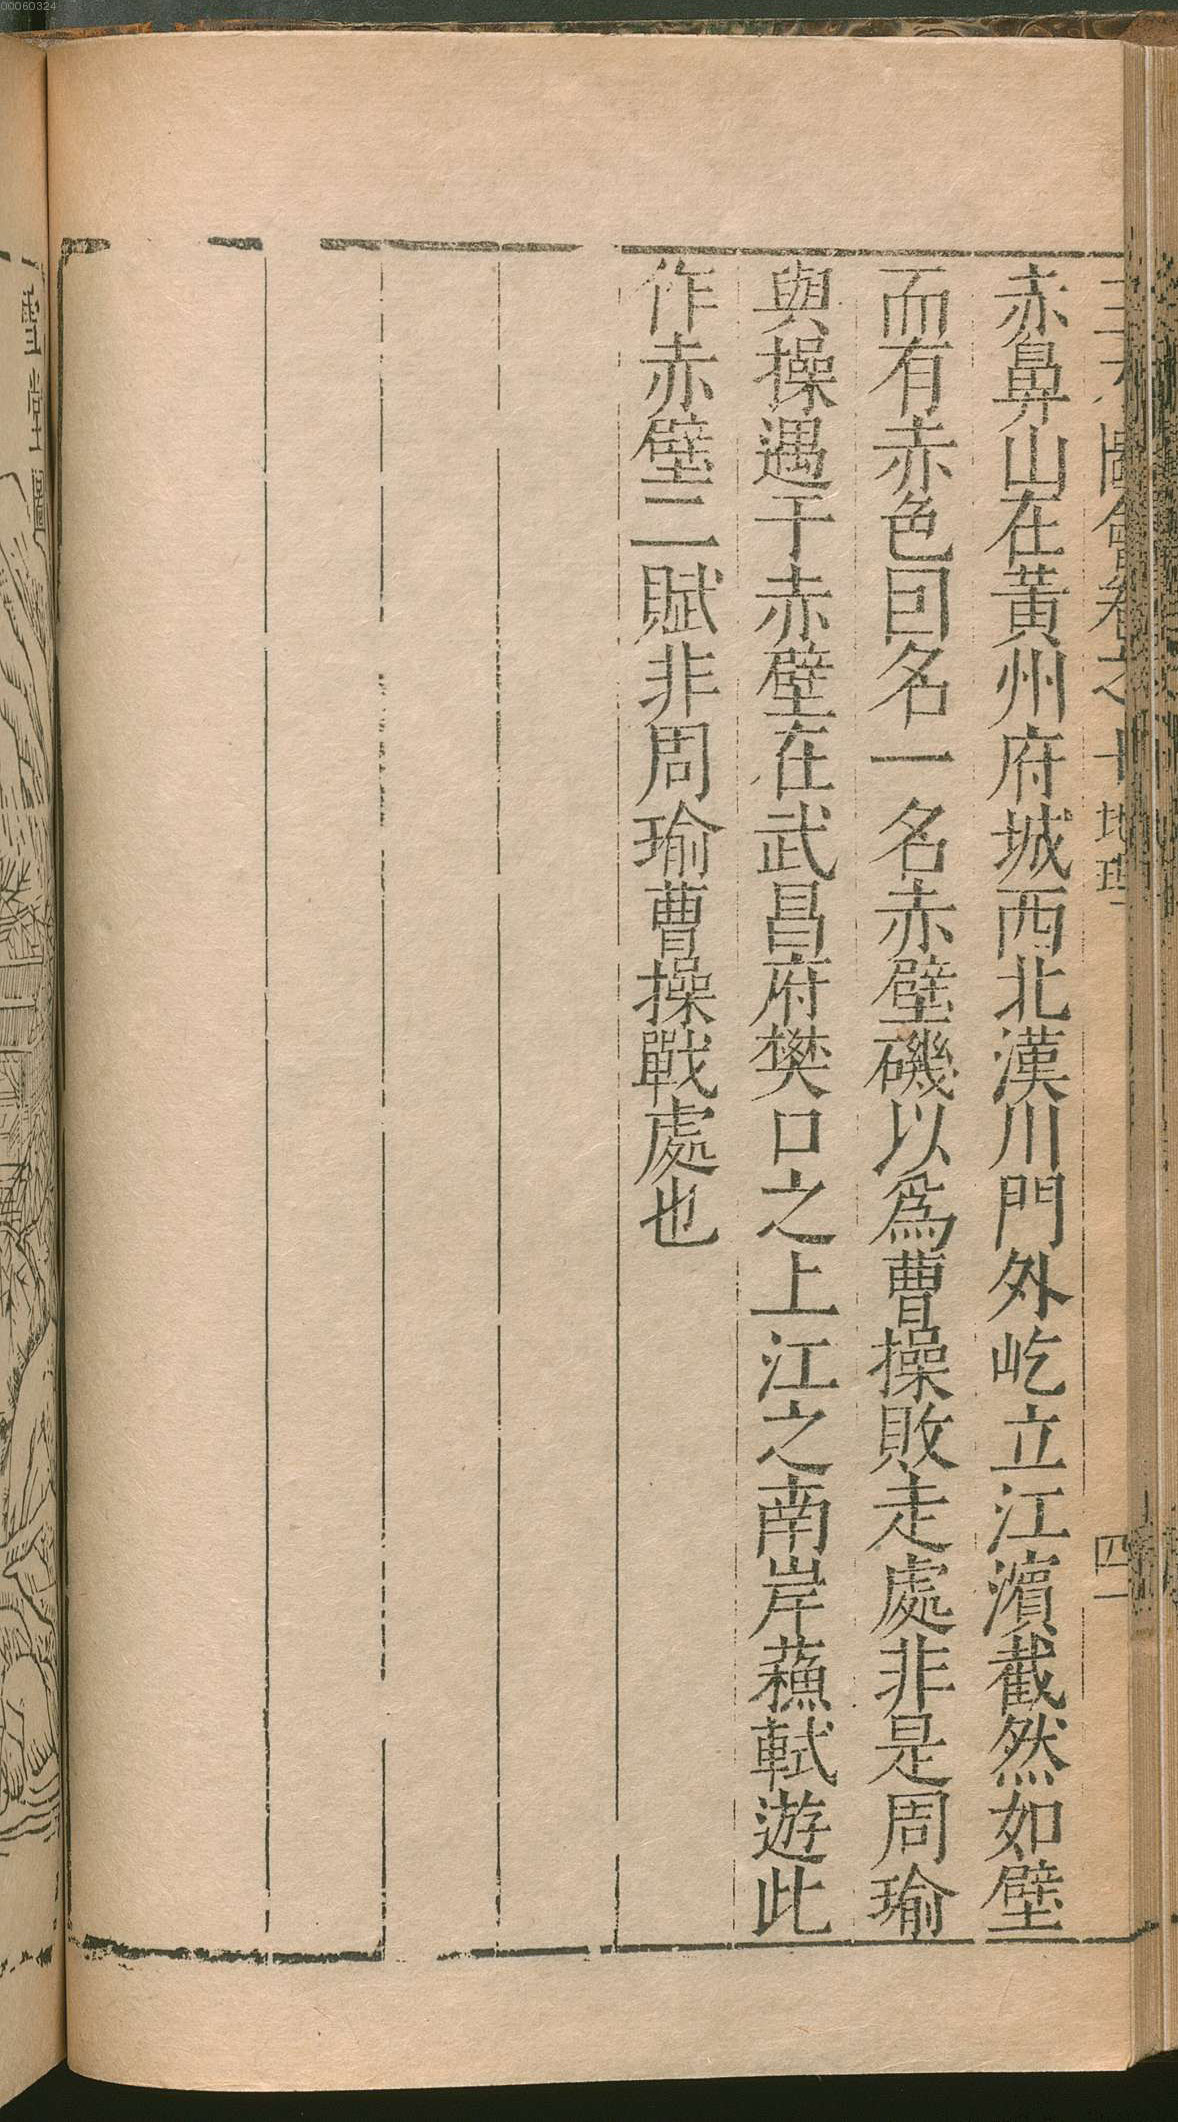 00060324
三才圖會卷之十地理 四一
赤鼻山在黃州府城西北漢川門外屹立江濵截然如壁
而有赤色囙名一名赤壁磯以爲曹操敗走處非是周瑜
與操遇于赤壁在武昌府樊口之上江之南岸蘓軾遊此
作赤壁二賦非周瑜曹操戰處也
雪堂圖